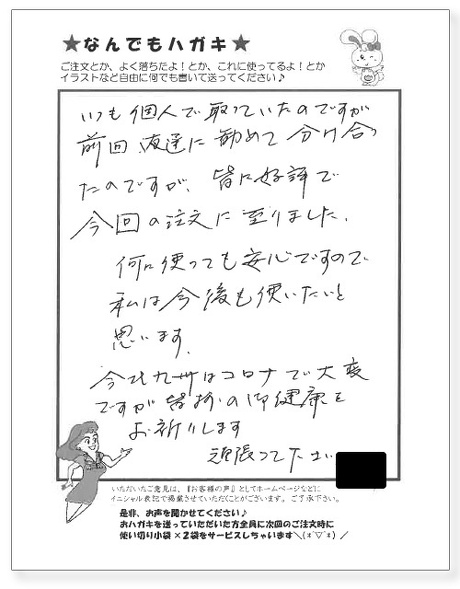 ★なんでもハガキ★
ご注文とか、よく落ちたよ！とか、これに使ってるよ！とか
イラストなど自由に何でも書いて送ってください♪
いつも個人で取っていたのですが
前回 友達に勧めて分け合っ
たのですが、皆に好評で
今回の注文に至りました。
何に使っても安心ですので
私は今後も使いたいと
思います。
今北九州はコロナで大変
ですが皆揃の御健康を
お祈りします
頑張って下さい
いただいたご意見は、『お客様の声』としてホームページなどに
イニシャル表記で掲載させていただくことがございます。ご了承下さい。
是非、お声を聞かせてください♪
おハガキを送っていただいた方全員に次回のご注文時に
使い切り小袋×2袋をサービスしちゃいます＼(*^▽^*)／